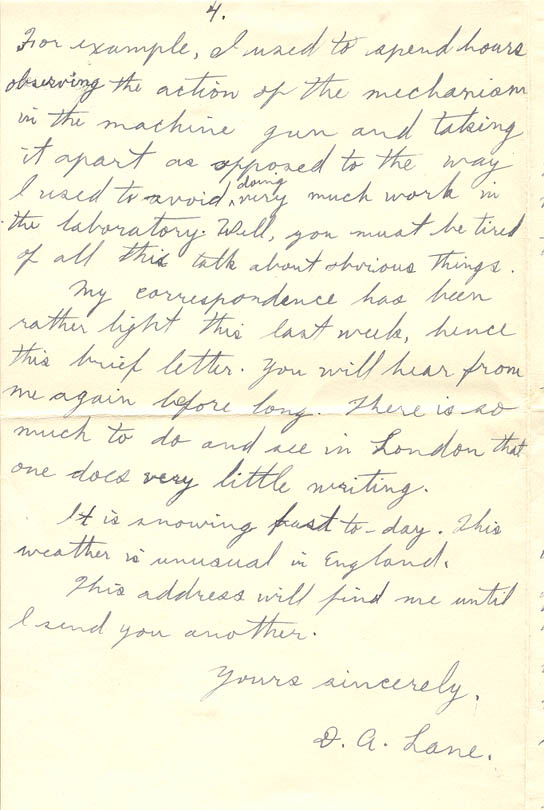 4.
For example, I used to spend hours
observing the action of the mechanism
in the machine gun and taking
it apart as opposed to the way
I used to avoid, doing very much work in
the laboratory. Well, you must be tired
of all this talk about obvious things.
My correspondence has been
rather light this last week, hence
this brief letter. You will hear from
me again before long. There is so
much to do and see in London that
one does very little writing.
It is snowing to-day. This
weather is unusual in England.
This address will find me until
I send you another.
Yours sincerely,
D. A. Lane.